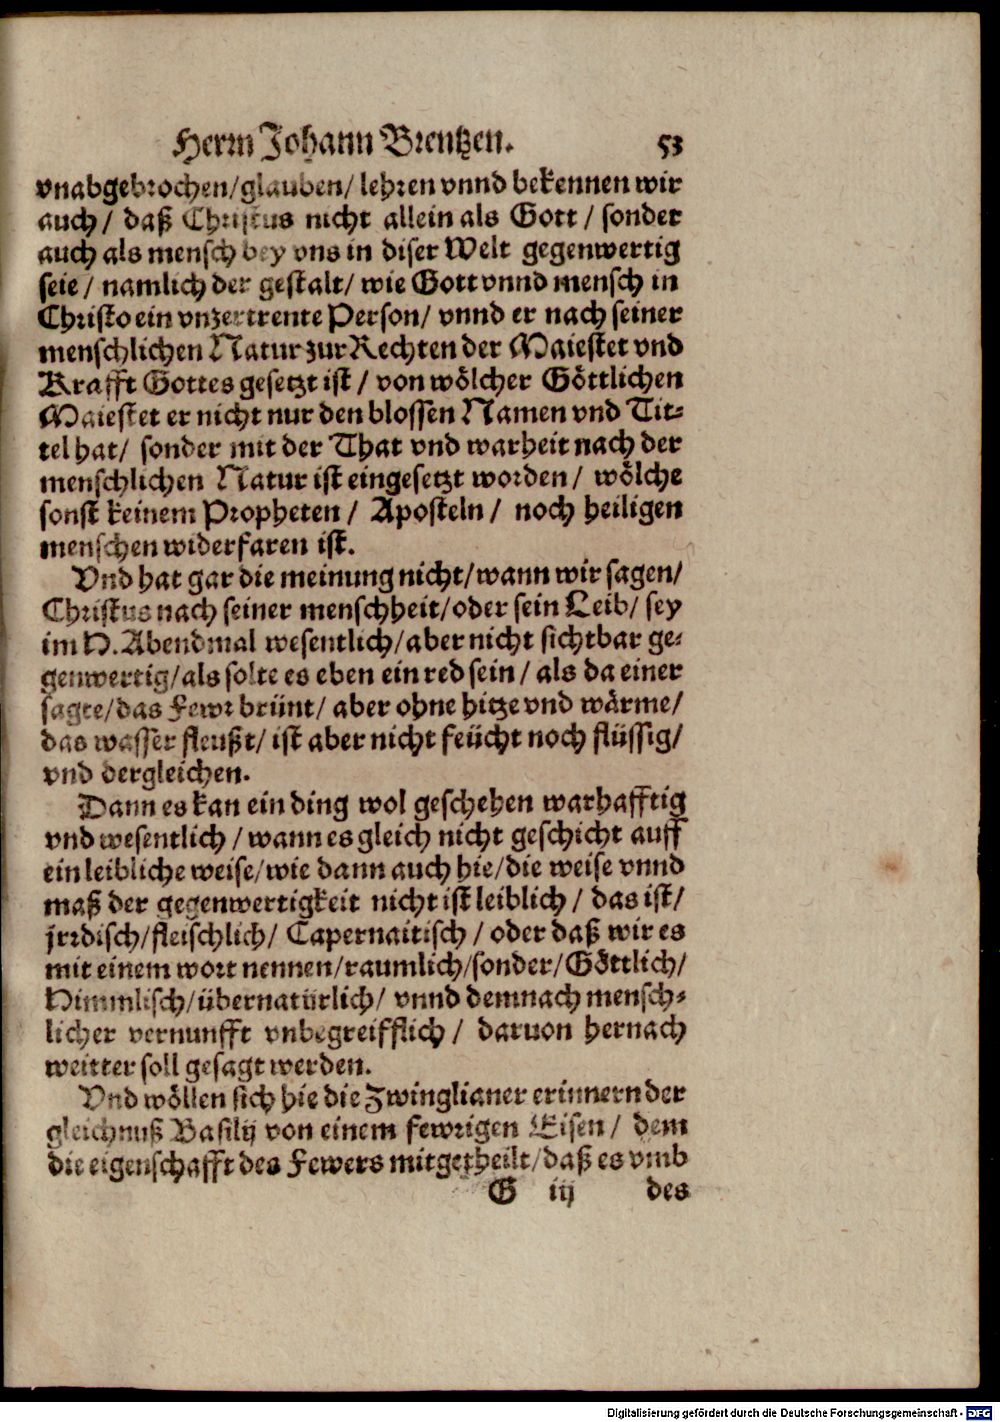 Herrn Johann Brentzen. 53
vnabgebrochen/glauben/ lehren vnnd bekennen wir
auch/ daß Christus nicht allein als Gott/ sonder
auch als mensch bey vns in diser Welt gegenwertig
seie/ namlich der gestalt/ wie Gott vnnd mensch in
Christo ein vnzertrente Person/ vnnd er nach seiner
menschlichen Natur zur Rechten der Maiestet vnd
Krafft Gottes gesetzt ist/ von wölcher Göttlichen
Maiestet er nicht nur den blossen Namen vnd Tit-
tel hat/ sonder mit der That vnd warheit nach der
menschlichen Natur ist eingesetzt worden/ wölche
sonst keinem Propheten/ Aposteln/ noch heiligen
menschen widerfaren ist.
Vnd hat gar die meinung nicht/wann wir sagen/
Christus nach seiner menschheit/oder sein Leib/ sey
im H. Abendmal wesentlich/aber nicht sichtbar ge-
genwertig/als solte es eben ein red sein/ als da einer
sagte/das Fewr brünt/ aber ohne hitze vnd wärme/
das wasser fleußt/ ist aber nicht feücht noch flüssig/
vnd dergleichen.
Dann es kan ein ding wol geschehen warhafftig
vnd wesentlich/ wann es gleich nicht geschicht auff
ein leibliche weise/wie dann auch hie/die weise vnnd
maß der gegenwertigkeit nicht ist leiblich/ das ist/
jrrdisch/fleischlich/ Capernaitisch/ oder daß wir es
mit einem wort nennen/raumlich/sonder/Göttlich/
Himmlisch/übernatürlich/ vnnd demnach mensch-
licher vernunfft vnbegreifflich/ daruon hernach
weitter soll gesagt werden.
Vnd wöllen sich hie die Zwinglianer erinnern der
gleichnuß Basilij von einem fewrigen Eisen/ dem
die eigenschafft des Fewers mitgetheilt/daß es vmb
G iij des
Digitalisierung gefördert durch die Deutsche Forschungsgemeinschaft - DFG